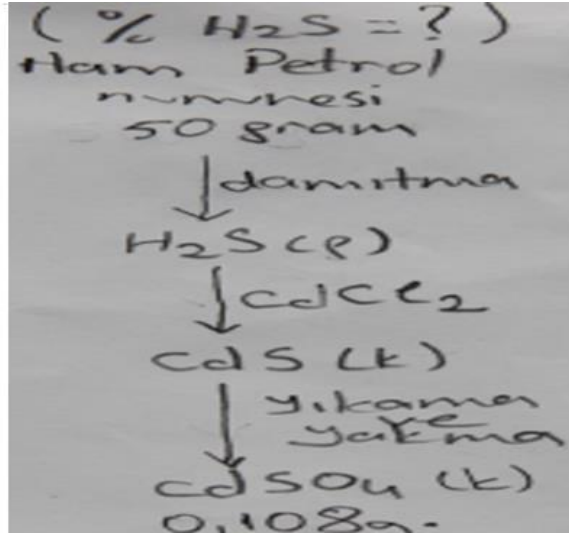 ( % H2S = ? )
Ham Petrol
numunesi
50 gram
damıtma
H2S(g)
CdCl2
CdS (k)
yıkama
ve
yakma
CdSO4 (k)
0,108g.